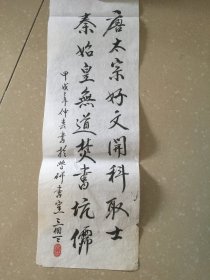 唐太宗好文開科取士
秦始皇無道焚書坑儒
甲戌年仲春書於學研書室